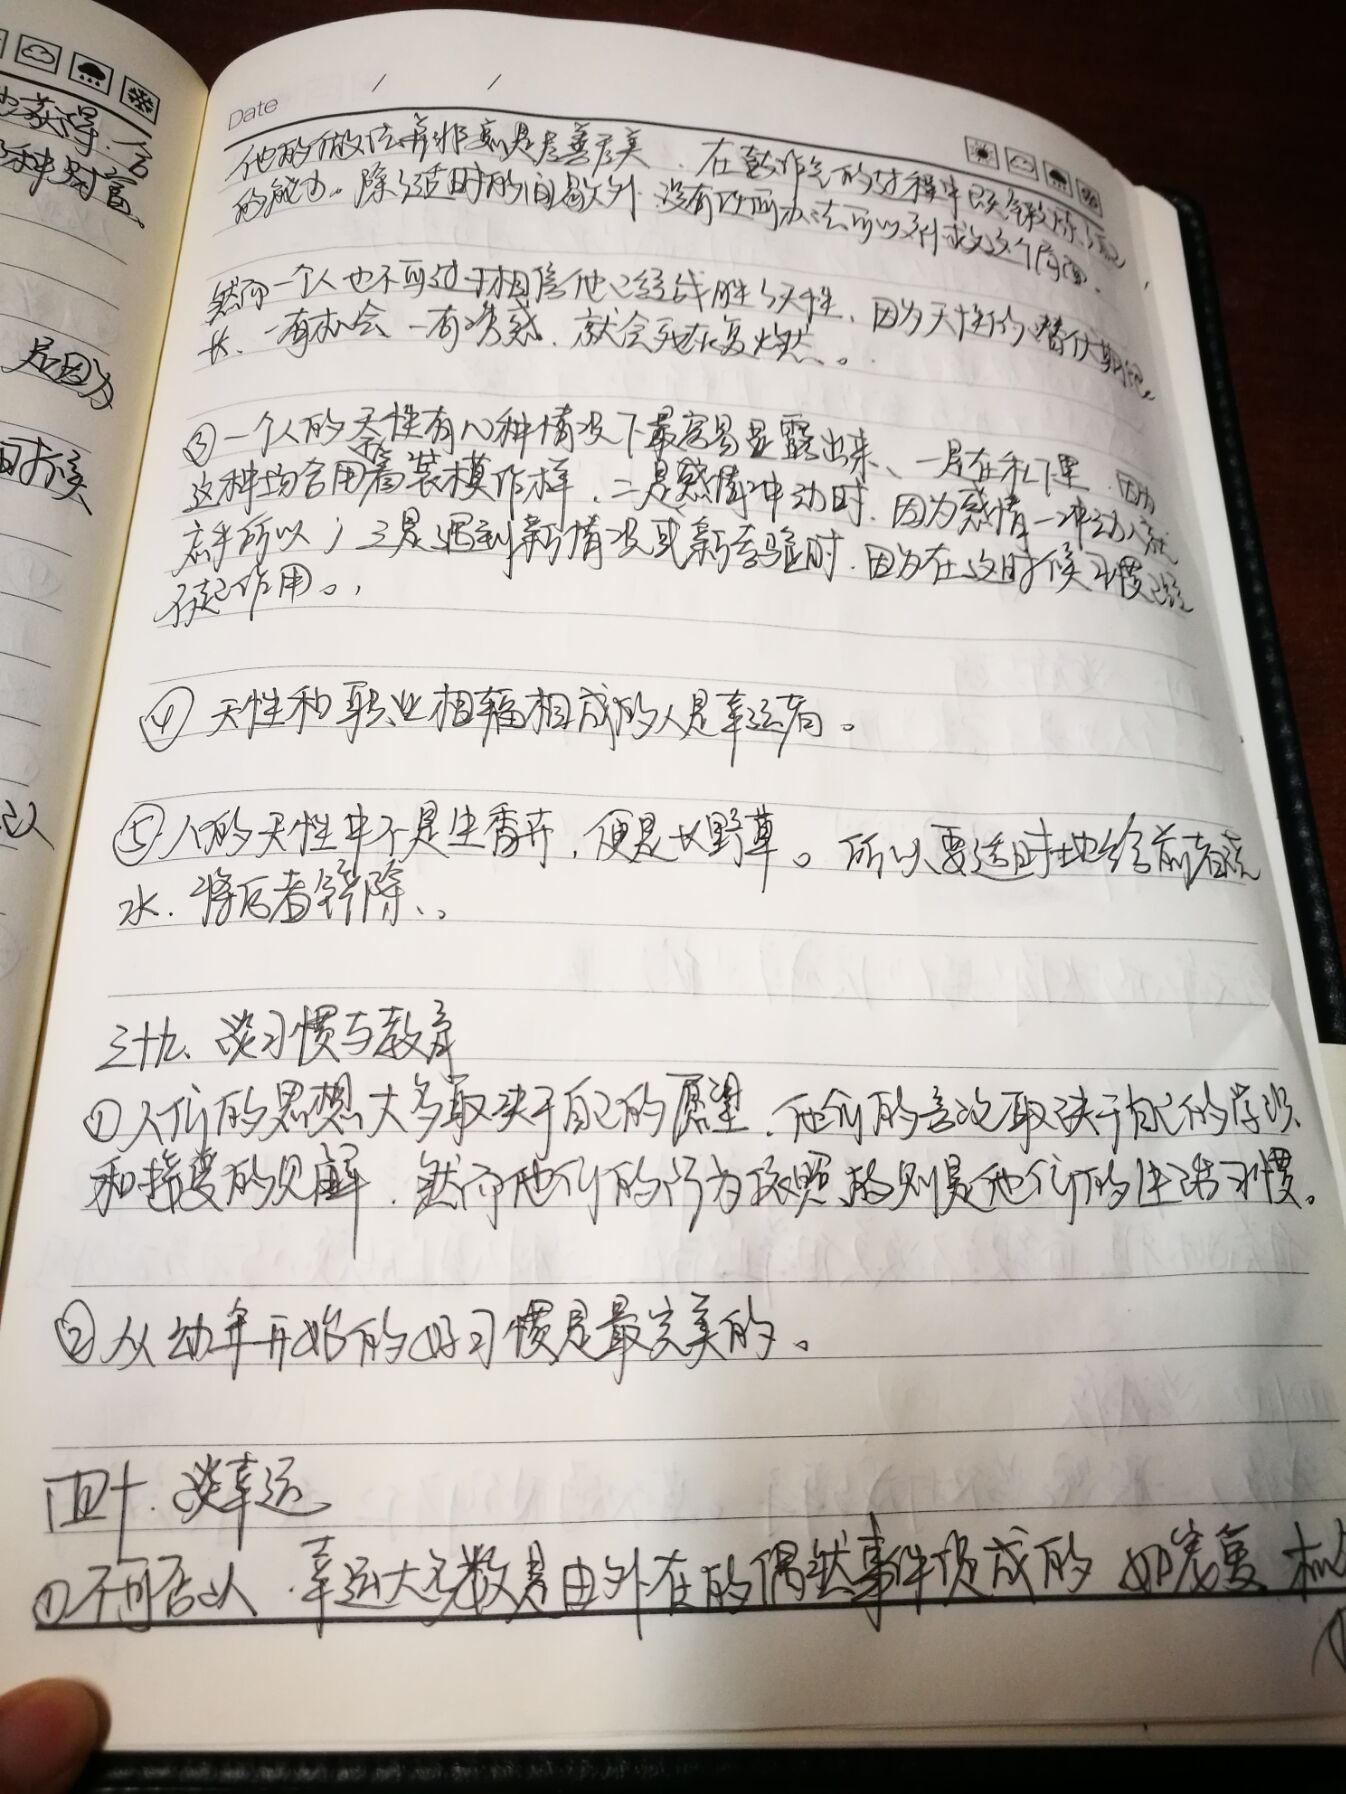 也获得，令
种财富。
是因为
时候
以
Date / /
他的做法并非就是尽善尽美，在
的能力。除了适时的间歇外，没有任何办法可以纠正这个
然而一个人也不可过于相信他已经战胜了天性，因为天性的潜伏期很
长，一有机会一有诱惑，就会死灰复燃。
③一个人的天性有几种情况下最容易显露出来、一是在私下里，因为
这种场合用不着装模作样，二是感情冲动时，因为感情一冲动人就
忘乎所以；三是遇到新情况或新考验时，因为在这时候习惯已经
不起作用。
④天性和职业相辐相成的人是幸运者。
⑤人的天性中不是生香卉，便是长野草。所以要适时地给前者浇
水，将后者锌除。
三十九、谈习惯与教育
①人们的思想大多取决于自己的愿望，他们的言论取决于自己的学识
和接受的见解，然而他们的行为依照的则是他们的生活习惯。
②从幼年开始的好习惯是最完美的。
四十、谈幸运
①不可否认，幸运大多数是由外在的偶然事件促成的 如宠爱 机